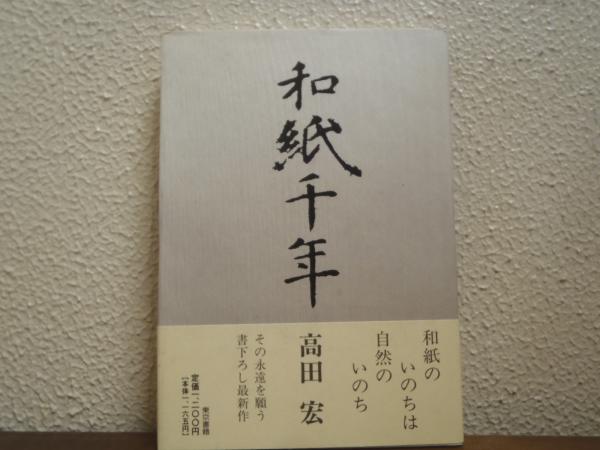 和紙千年
和紙の
いのちは
自然の
いのち
高田 宏
その永遠を願う
書下ろし最新作
東京書籍
定価一、二〇〇円
[本体一、一六五円]